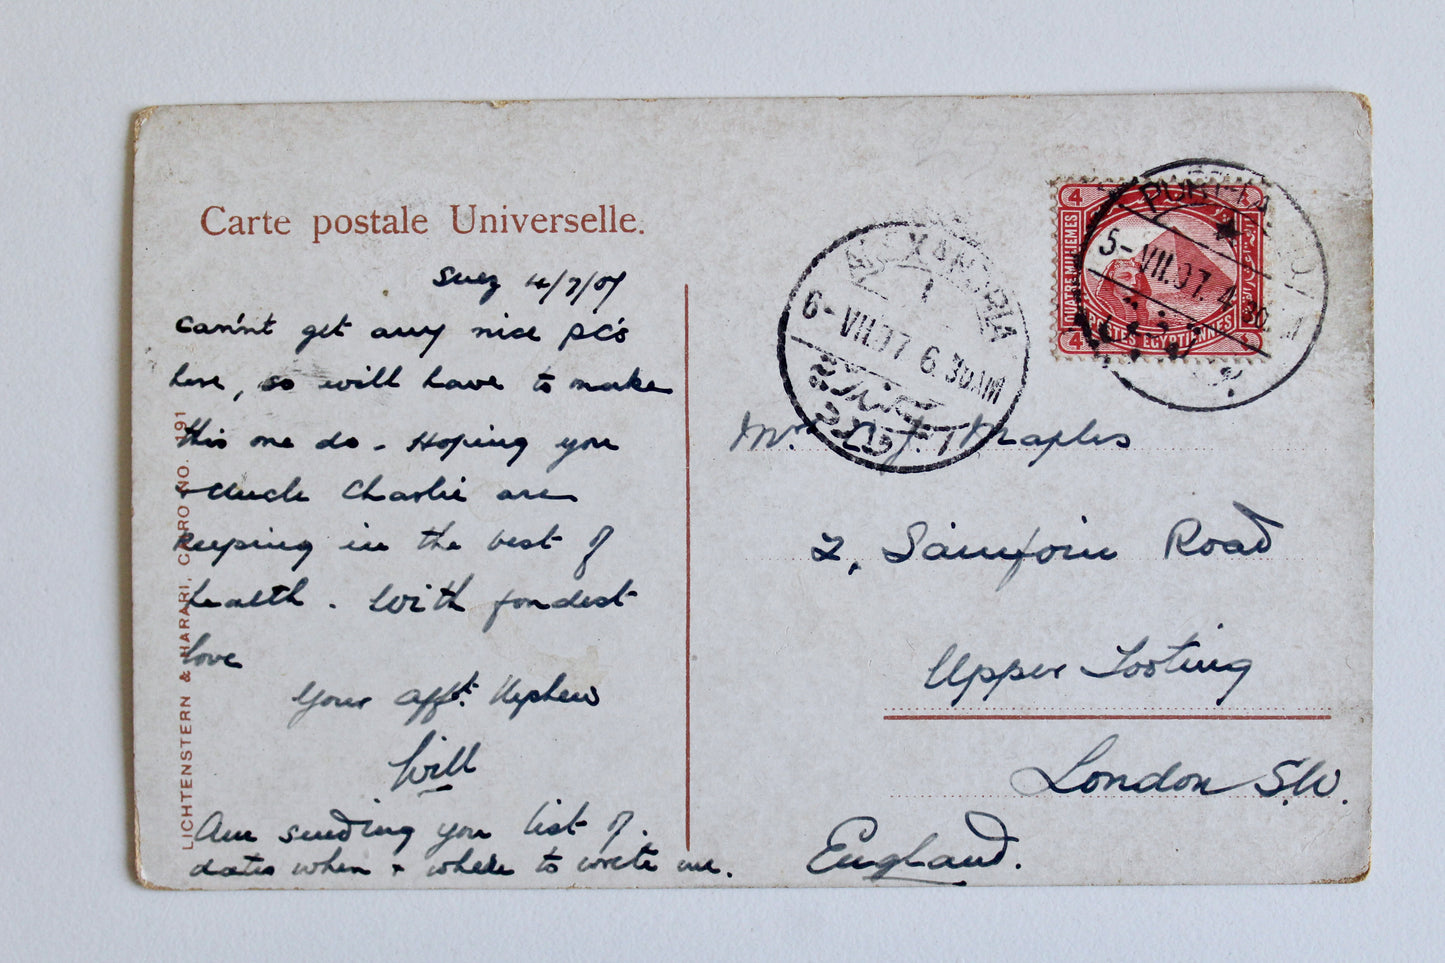 Carte postale Universelle.
Suez 4/7/07
can'nt get any nice pc's
here, so will have to make
this one do. Hoping you
+ Uncle Charlie are
keeping in the best of
health. With fondest
love
Your afft. Nephew
Will
Am sending you list of
dates when + where to write me.
LICHTENSTERN & HARARI, CAIRO NO. 191
ALEXANDRIA
1
6-VII.07 6.30AM
4 4
QUATRE MILLIEMES
POSTES EGYPTIENNES
PORT-TAUFIQ
5-VII.07. 4.30
Maples
2, Sainfoin Road
Upper Tooting
London S.W.
England.